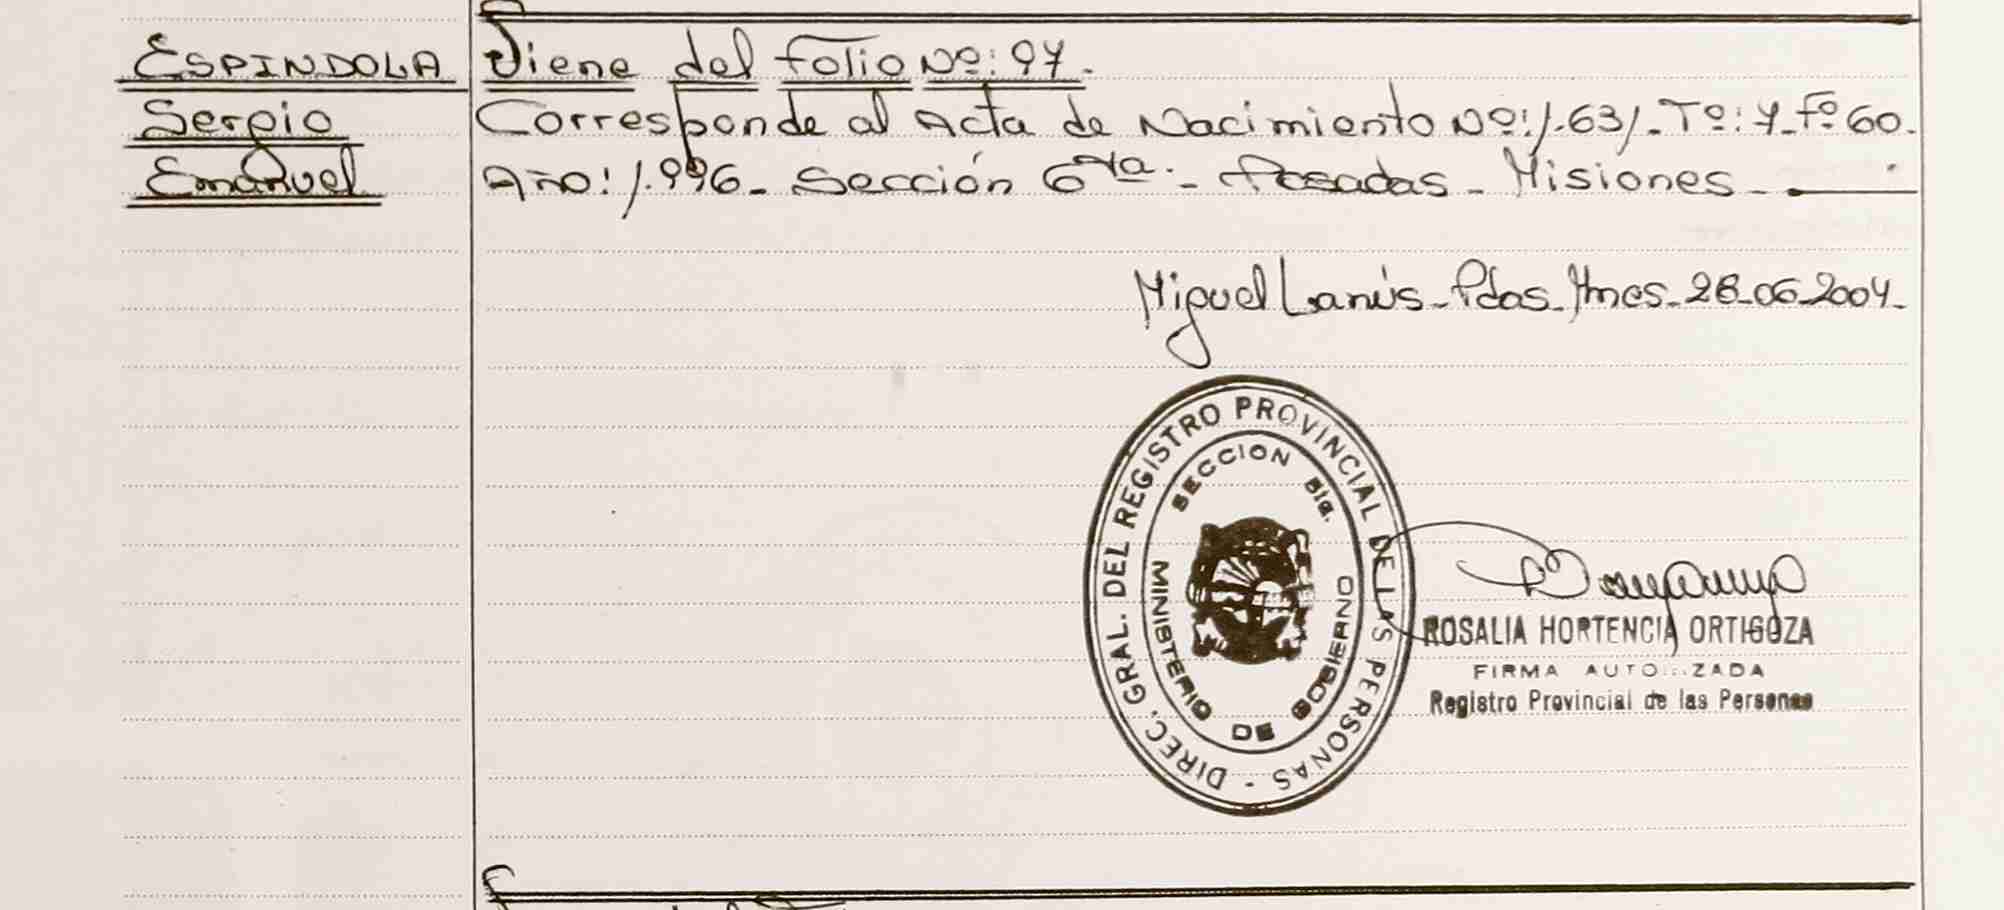 ESPINDOLA
Sergio
Emanuel
Viene del Folio Nº: 97.
Corresponde al Acta de Nacimiento Nº: 1.631. Tº: 7. Fº 60.
Año: 1.996. Sección 6ta. - Posadas - Misiones
Miguel Lanús - Pdas. Mnes. 28.06.2004.
DIREC. GRAL. DEL REGISTRO PROVINCIAL DE LAS PERSONAS -
SECCION 6ta.
MINISTERIO DE GOBIERNO
ROSALIA HORTENCIA ORTIGOZA
FIRMA AUTORIZADA
Registro Provincial de las Personas